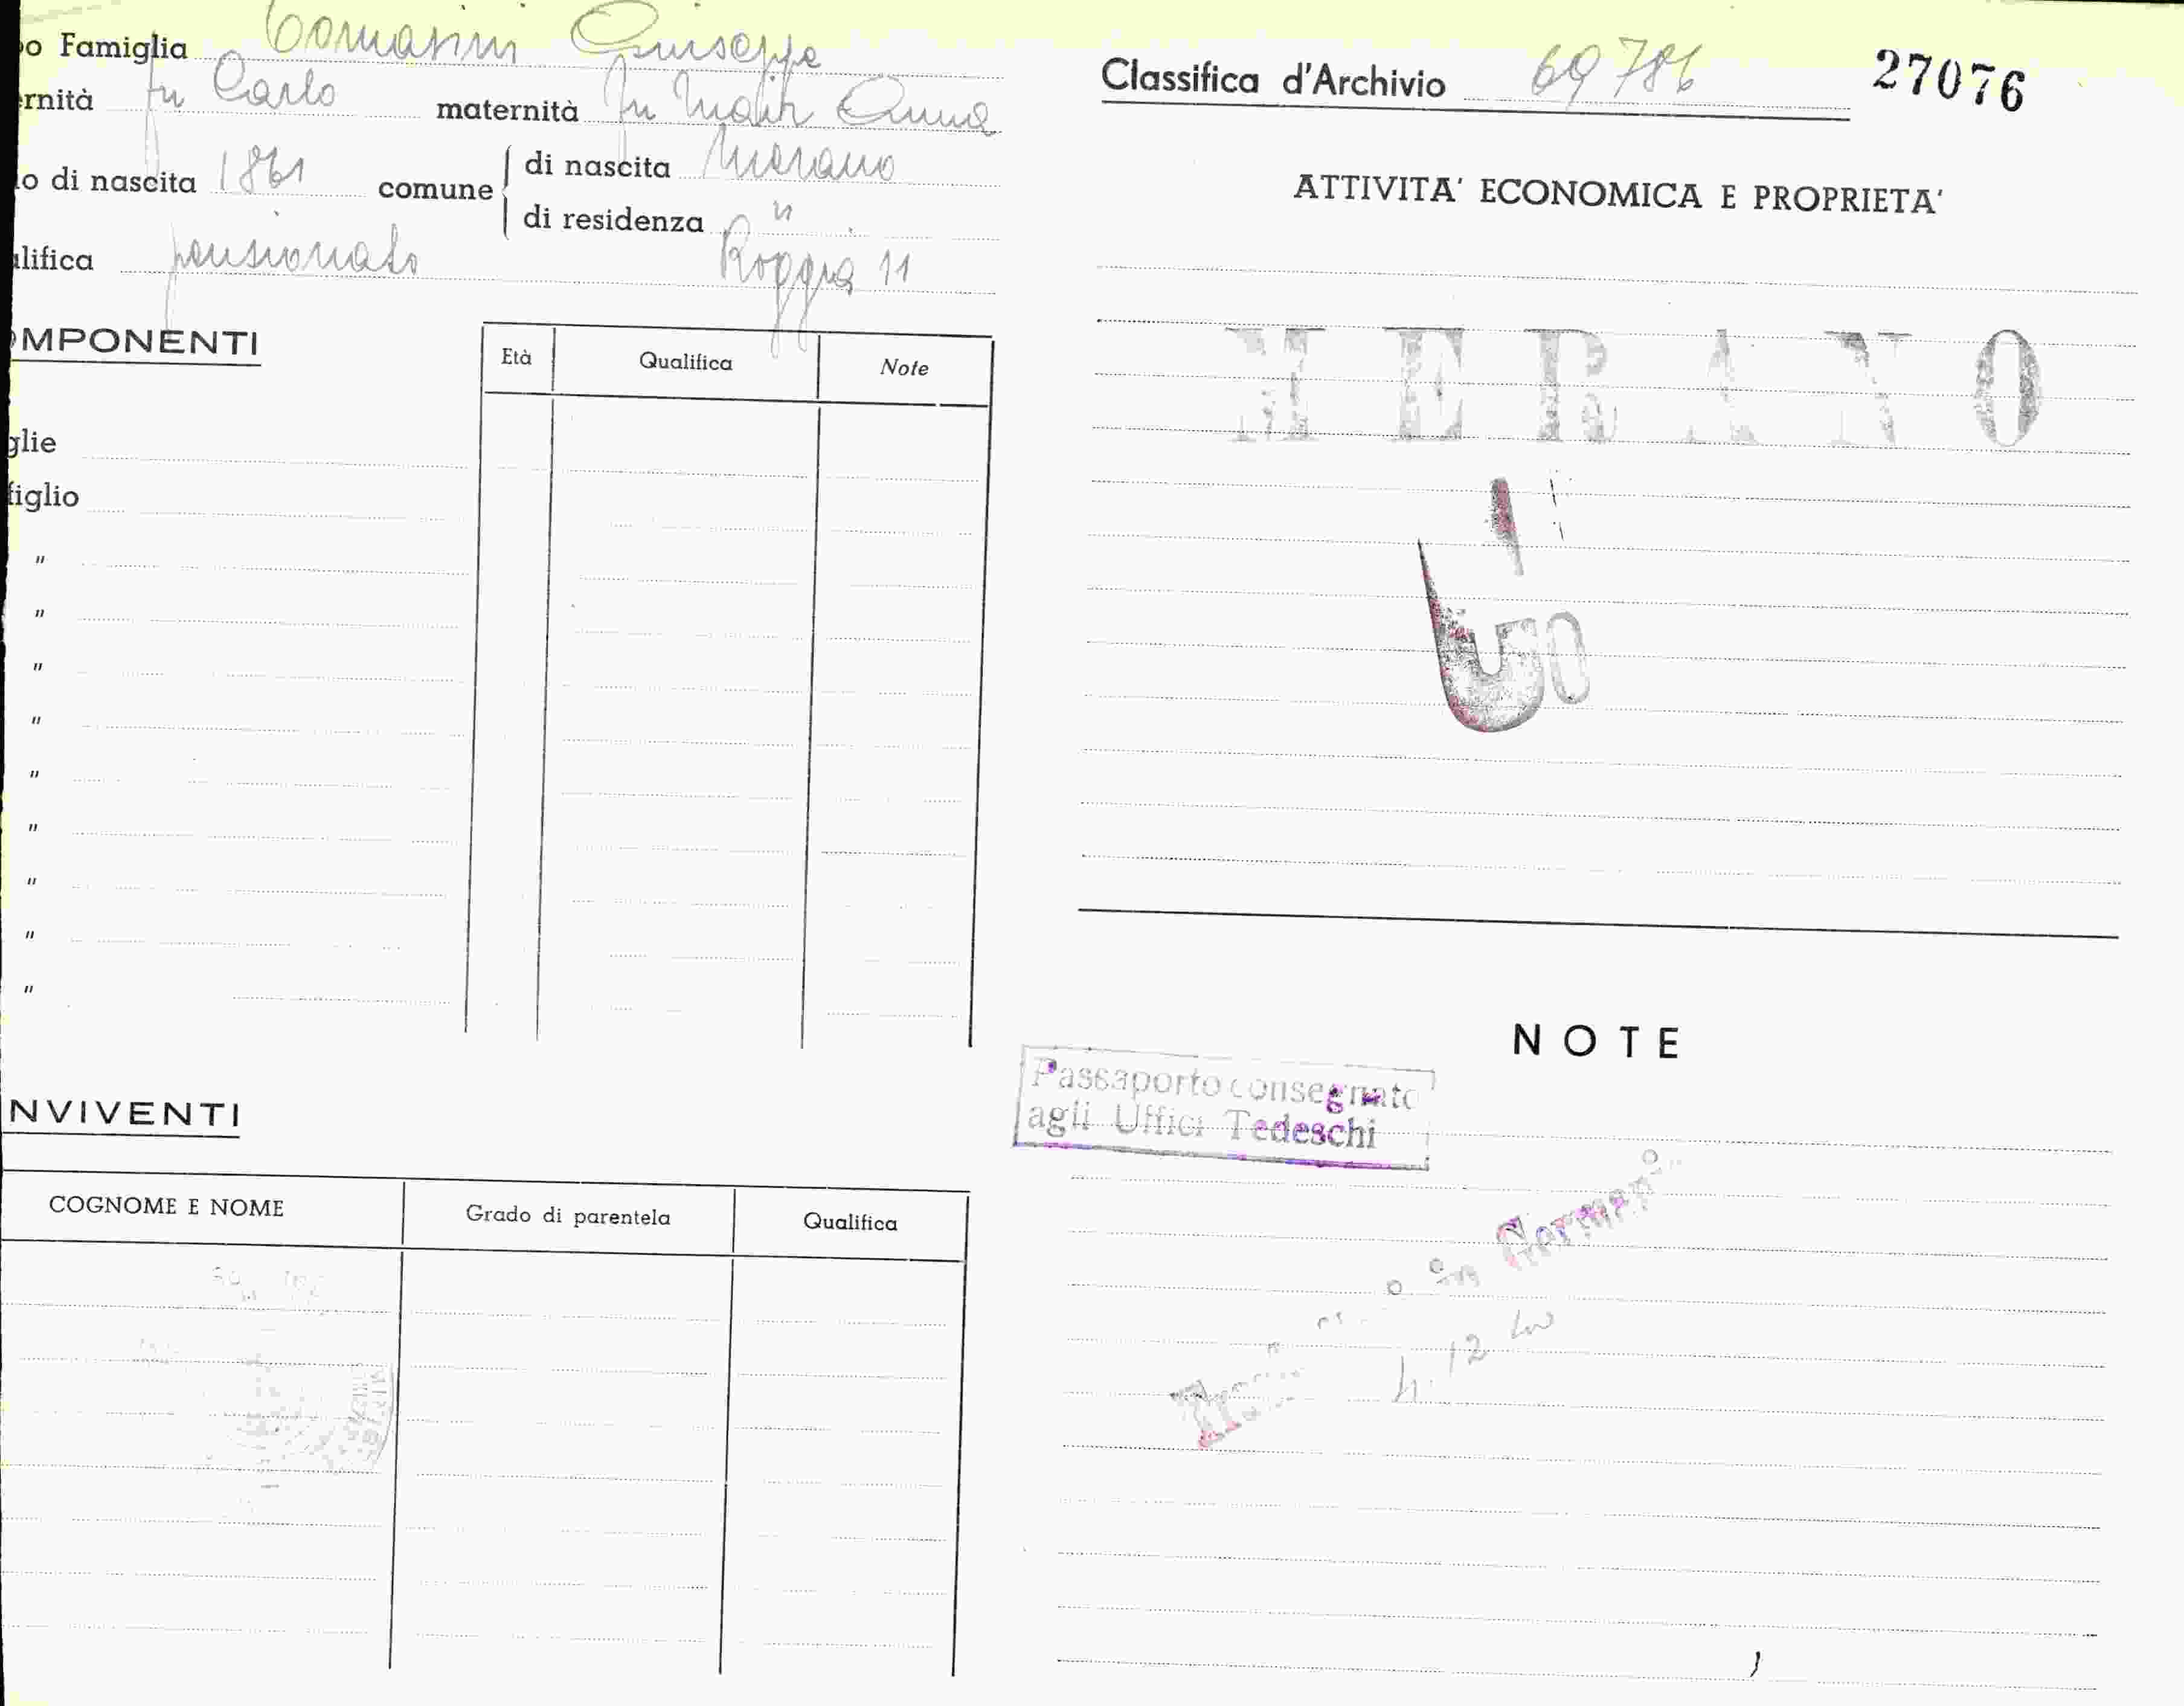 o Famiglia Tomasini Giuseppe
rnità fu Carlo maternità fu Anna
o di nascita 1861 comune di nascita Merano
di residenza "
lifica pensionato Roggia 11
OMPONENTI
Età Qualifica Note
glie
figlio
"
"
"
"
"
"
"
"
"
NVIVENTI
COGNOME E NOME Grado di parentela Qualifica
Classifica d'Archivio 69786 27076
ATTIVITA' ECONOMICA E PROPRIETA'
MERANO
NOTE
Passaporto consegnato
agli Uffici Tedeschi